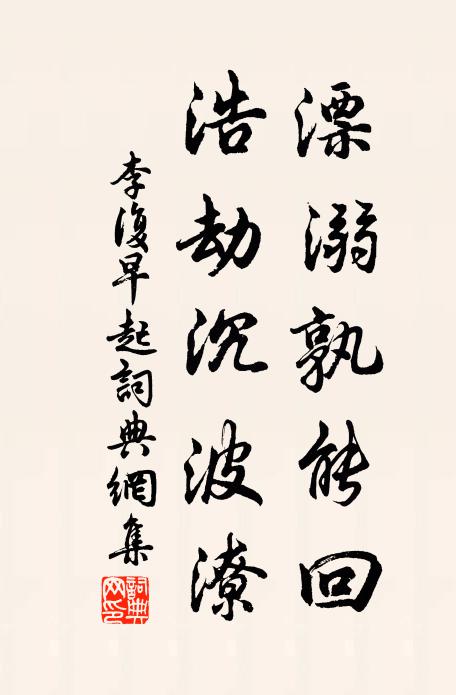 漂溺孰能回
浩劫沉波潦
李復早起詞典網集
詞典網印